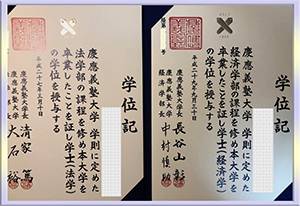 学位記
慶應義塾大学 学則に定めた
法学部の課程を修め本大学を
卒業したことを証し学士(法学)
の学位を授与する
平成二十七年三月十日
慶應義塾大学長 清家 篤
慶應義塾大学 大石 裕
学位記
慶應義塾大学 学則に定めた
経済学部の課程を修め本大学を
卒業したことを証し学士(経済学)
の学位を授与する
平成二十九年 月十日
慶應義塾大学長 長谷山 彰
経済学部長 中村慎助